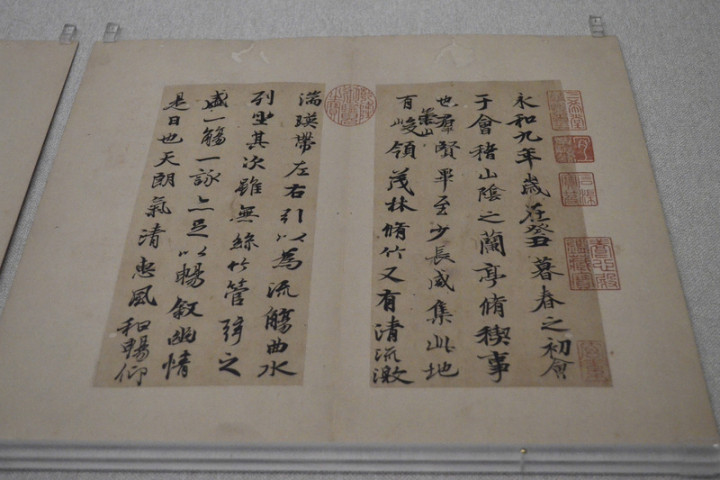 永和九年歲在癸丑暮春之初會
于會稽山陰之蘭亭脩稧事
也群賢畢至少長咸集此地
崇山
有峻領茂林脩竹又有清流激
湍暎帶左右引以為流觴曲水
列坐其次雖無絲竹管弦之
盛一觴一詠亦足以暢敘幽情
是日也天朗氣清惠風和暢仰